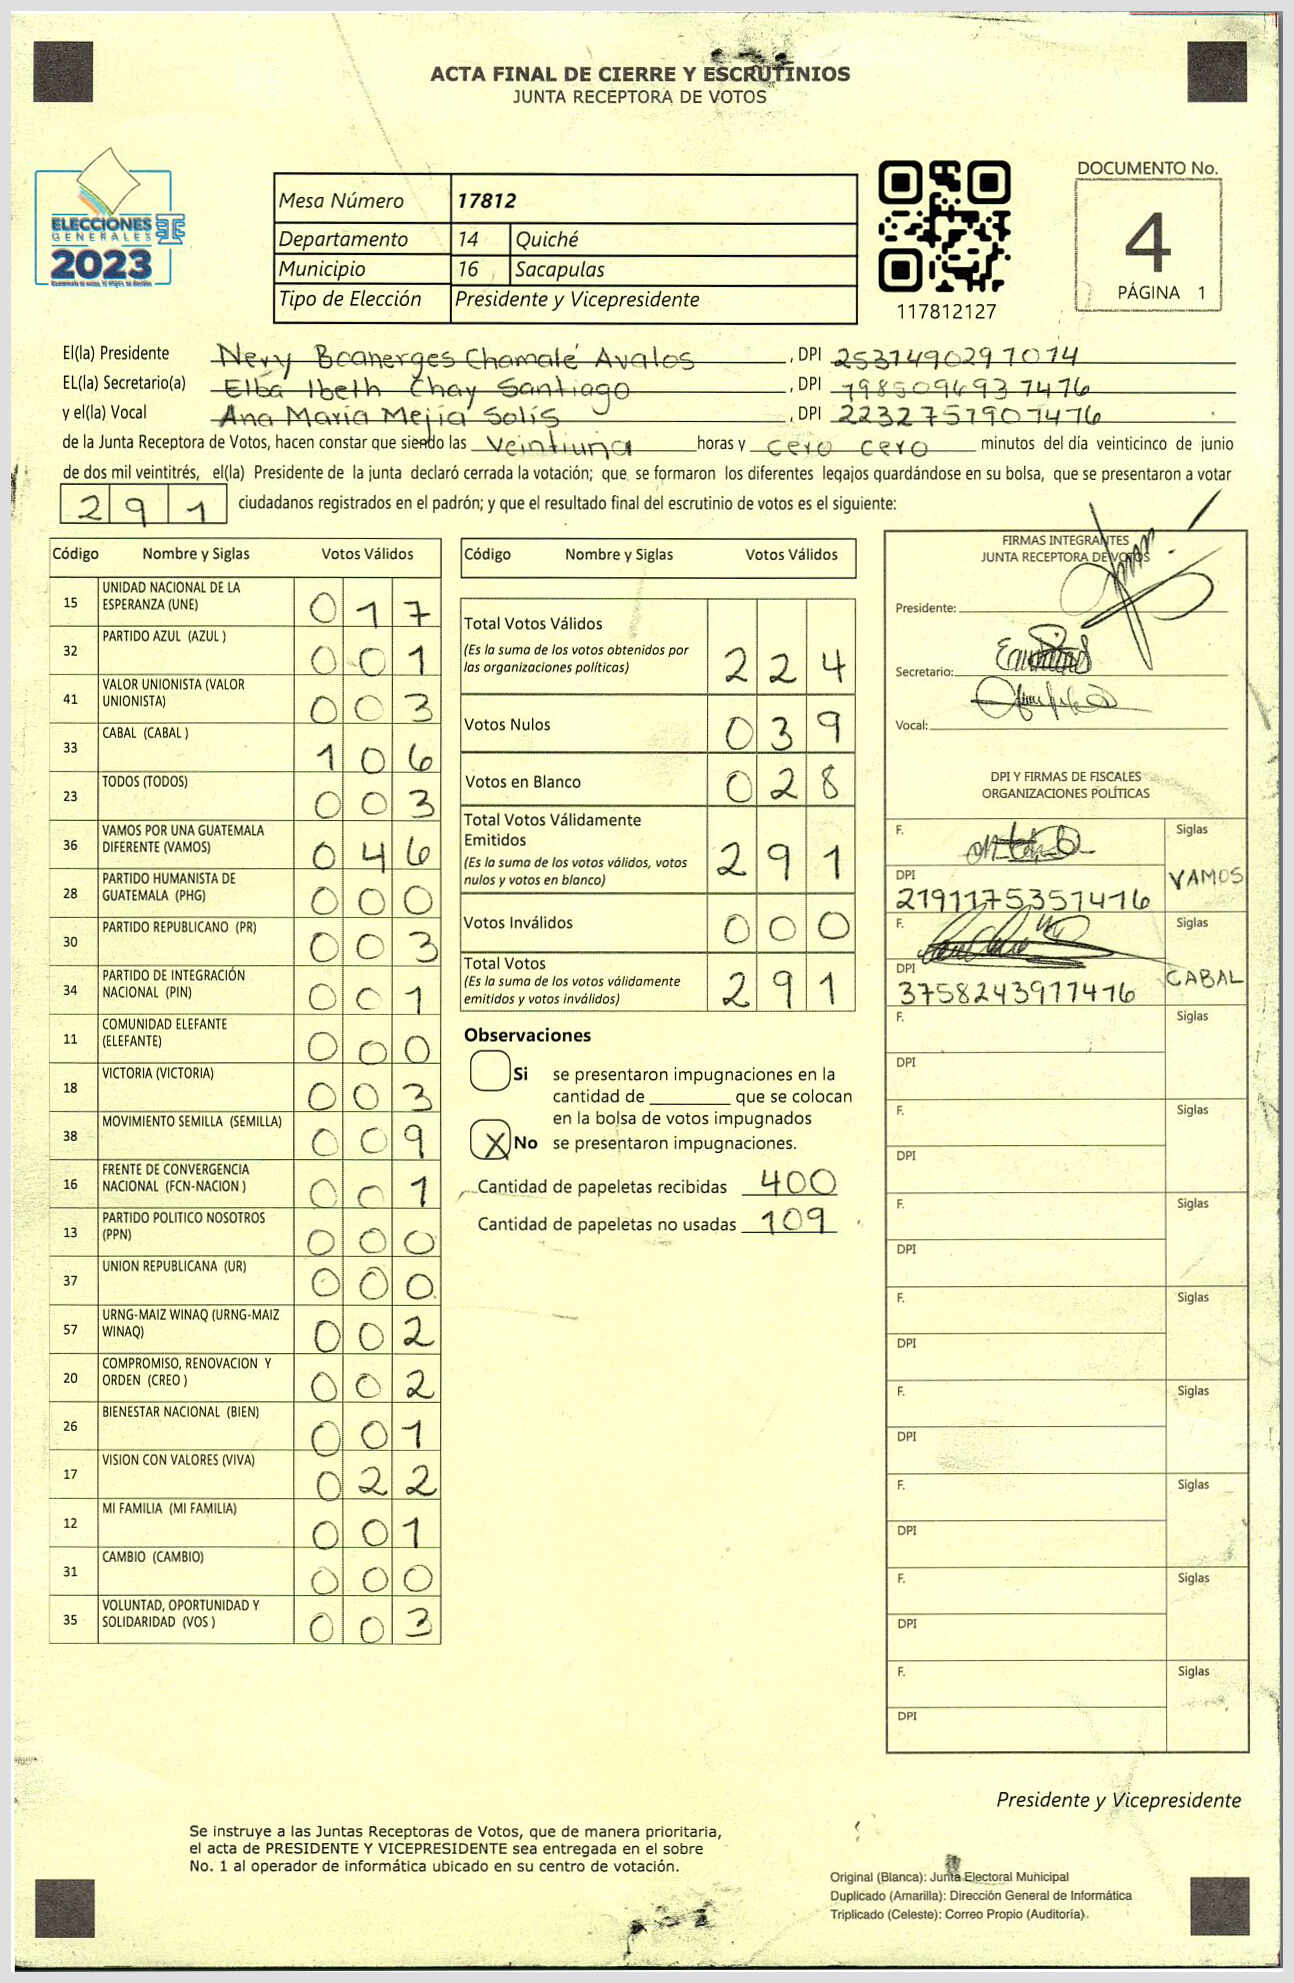 ACTA FINAL DE CIERRE Y ESCRUTINIOS
JUNTA RECEPTORA DE VOTOS
ELECCIONES
GENERALES
2023
Mesa Número 17812
Departamento 14 Quiché
Municipio 16 Sacapulas
Tipo de Elección Presidente y Vicepresidente
117812127
DOCUMENTO No.
4
PÁGINA 1
El(la) Presidente Nery Boanerges Chamalé Avalos, DPI 2531490297014
EL(la) Secretario(a) Elba Ibeth Chay Santiago, DPI 1985096937416
y el(la) Vocal Ana Maria Mejía Solís, DPI 2232757907416
de la Junta Receptora de Votos, hacen constar que siendo las Veintiuna horas y cero cero minutos del día veinticinco de junio
de dos mil veintitrés, el(la) Presidente de la junta declaró cerrada la votación; que se formaron los diferentes legajos guardándose en su bolsa, que se presentaron a votar
291 ciudadanos registrados en el padrón; y que el resultado final del escrutinio de votos es el siguiente:
Código Nombre y Siglas Votos Válidos
15 UNIDAD NACIONAL DE LA ESPERANZA (UNE) 017
32 PARTIDO AZUL (AZUL ) 001
41 VALOR UNIONISTA (VALOR UNIONISTA) 003
33 CABAL (CABAL ) 106
23 TODOS (TODOS) 003
36 VAMOS POR UNA GUATEMALA DIFERENTE (VAMOS) 046
28 PARTIDO HUMANISTA DE GUATEMALA (PHG) 000
30 PARTIDO REPUBLICANO (PR) 003
34 PARTIDO DE INTEGRACIÓN NACIONAL (PIN) 001
11 COMUNIDAD ELEFANTE (ELEFANTE) 000
18 VICTORIA (VICTORIA) 003
38 MOVIMIENTO SEMILLA (SEMILLA) 009
16 FRENTE DE CONVERGENCIA NACIONAL (FCN-NACION ) 001
13 PARTIDO POLITICO NOSOTROS (PPN) 000
37 UNION REPUBLICANA (UR) 000
57 URNG-MAIZ WINAQ (URNG-MAIZ WINAQ) 002
20 COMPROMISO, RENOVACION Y ORDEN (CREO ) 002
26 BIENESTAR NACIONAL (BIEN) 001
17 VISION CON VALORES (VIVA) 022
12 MI FAMILIA (MI FAMILIA) 001
31 CAMBIO (CAMBIO) 000
35 VOLUNTAD, OPORTUNIDAD Y SOLIDARIDAD (VOS ) 003
Código Nombre y Siglas Votos Válidos
Total Votos Válidos 224
(Es la suma de los votos obtenidos por
las organizaciones políticas)
Votos Nulos 039
Votos en Blanco 028
Total Votos Válidamente
Emitidos 291
(Es la suma de los votos válidos, votos
nulos y votos en blanco)
Votos Inválidos 000
Total Votos 291
(Es la suma de los votos válidamente
emitidos y votos inválidos)
Observaciones
Si se presentaron impugnaciones en la
cantidad de ________ que se colocan
en la bolsa de votos impugnados
X No se presentaron impugnaciones.
Cantidad de papeletas recibidas 400
Cantidad de papeletas no usadas 109
FIRMAS INTEGRANTES
JUNTA RECEPTORA DE VOTOS
Presidente:
Secretario:
Vocal:
DPI Y FIRMAS DE FISCALES
ORGANIZACIONES POLÍTICAS
F. Siglas
DPI VAMOS
2191175351416
F. Siglas
DPI CABAL
3758243971416
F. Siglas
DPI
F. Siglas
DPI
F. Siglas
DPI
F. Siglas
DPI
F. Siglas
DPI
F. Siglas
DPI
F. Siglas
DPI
F. Siglas
DPI
Presidente y Vicepresidente
Se instruye a las Juntas Receptoras de Votos, que de manera prioritaria,
el acta de PRESIDENTE Y VICEPRESIDENTE sea entregada en el sobre
No. 1 al operador de informática ubicado en su centro de votación.
Original (Blanca): Junta Electoral Municipal
Duplicado (Amarilla): Dirección General de Informática
Triplicado (Celeste): Correo Propio (Auditoría).